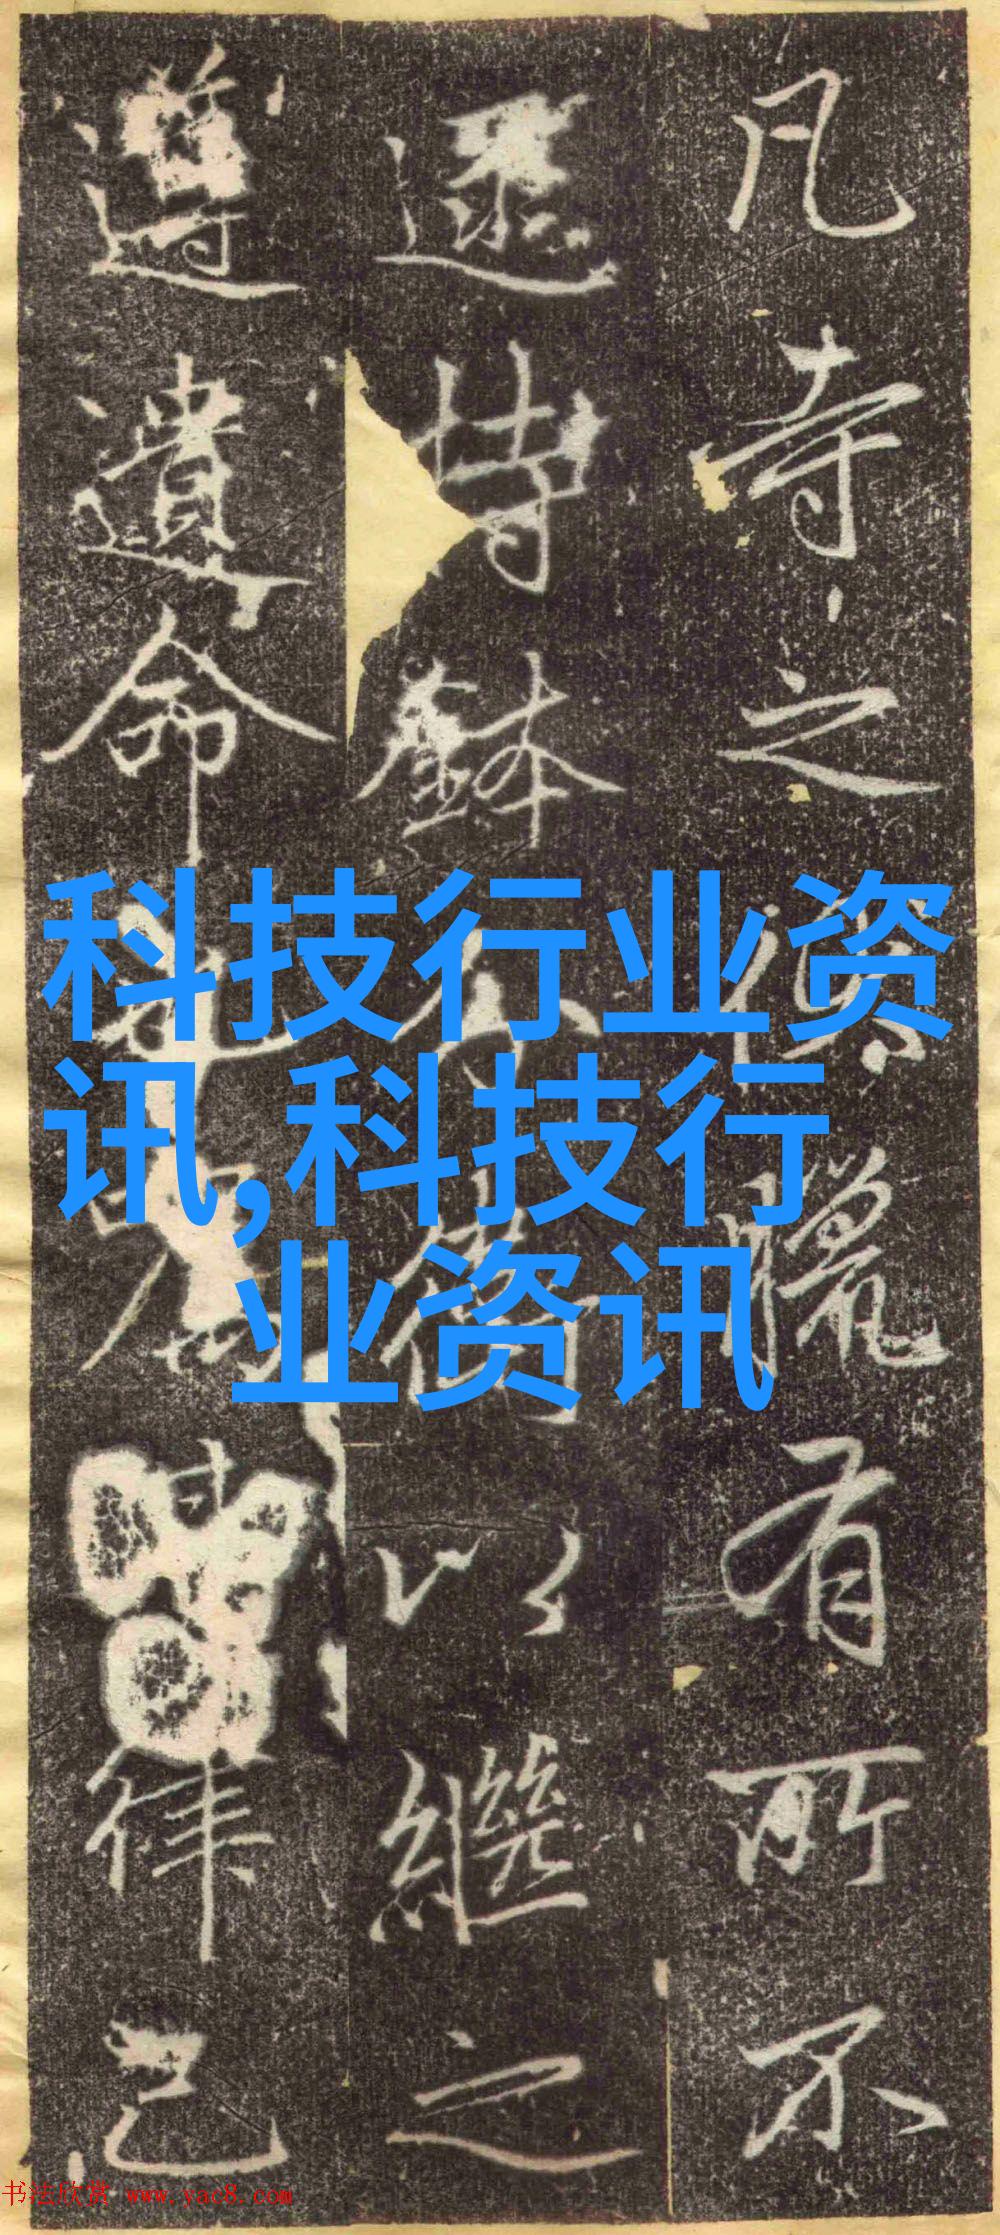 凡寺之臘有所不
持鉢以繼之
遵遺命律己
科技行业资
讯,科技行
业资讯
书法欣赏 www.yac8.com